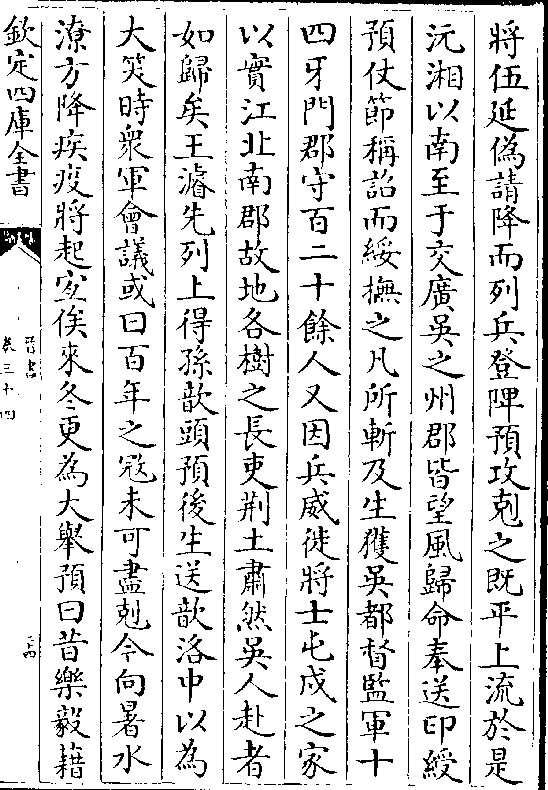 將伍延偽請降而列兵登陴預攻剋之既平上流於是
沅湘以南至于交廣吳之州郡皆望風歸命奉送印綬
預仗節稱詔而綏撫之凡所斬及生獲吳都督監軍十
四牙門郡守百二十餘人又因兵威徙將士屯戍之家
以實江北南郡故地各樹之長吏荆土肅然吳人赴者
如歸矣王濬先列上得孫歆頭預後生送歆洛中以為
大笑時衆軍會議或曰百年之寇未可盡剋今向暑水
潦方降疾疫將起宜俟來冬更為大舉預曰昔樂毅藉
欽定四庫全書
晉書
卷三十四